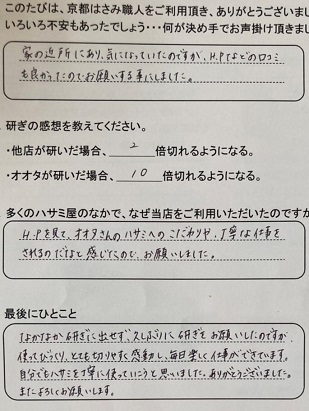 このたびは、京都はさみ職人をご利用頂き、ありがとうございまし
いろいろ不安もあったでしょう・・・何が決め手でお声掛け頂きまし
家の近所にあり、気になっていたのですが、H.Pなどの口コミ
も良かったのでお願いする事にしました。
研ぎの感想を教えてください。
・他店が研いだ場合、2倍切れるようになる。
・オオタが研いだ場合、10倍切れるようになる。
多くのハサミ屋のなかで、なぜ当店をご利用いただいたのですか
H.Pを見て、オオタさんのハサミへのこだわりや、丁寧な仕事を
されるのだなと感じたので、お願いしました。
最後にひとこと
なかなか研ぎに出せず、久しぶりに研ぎをお願いしたのですが
使ってびっくり、とても切りやすく感動し、毎日楽しく仕事ができています。
自分でもハサミを丁寧に使っていこうと思いました。ありがとうございました。
またよろしくお願いします。